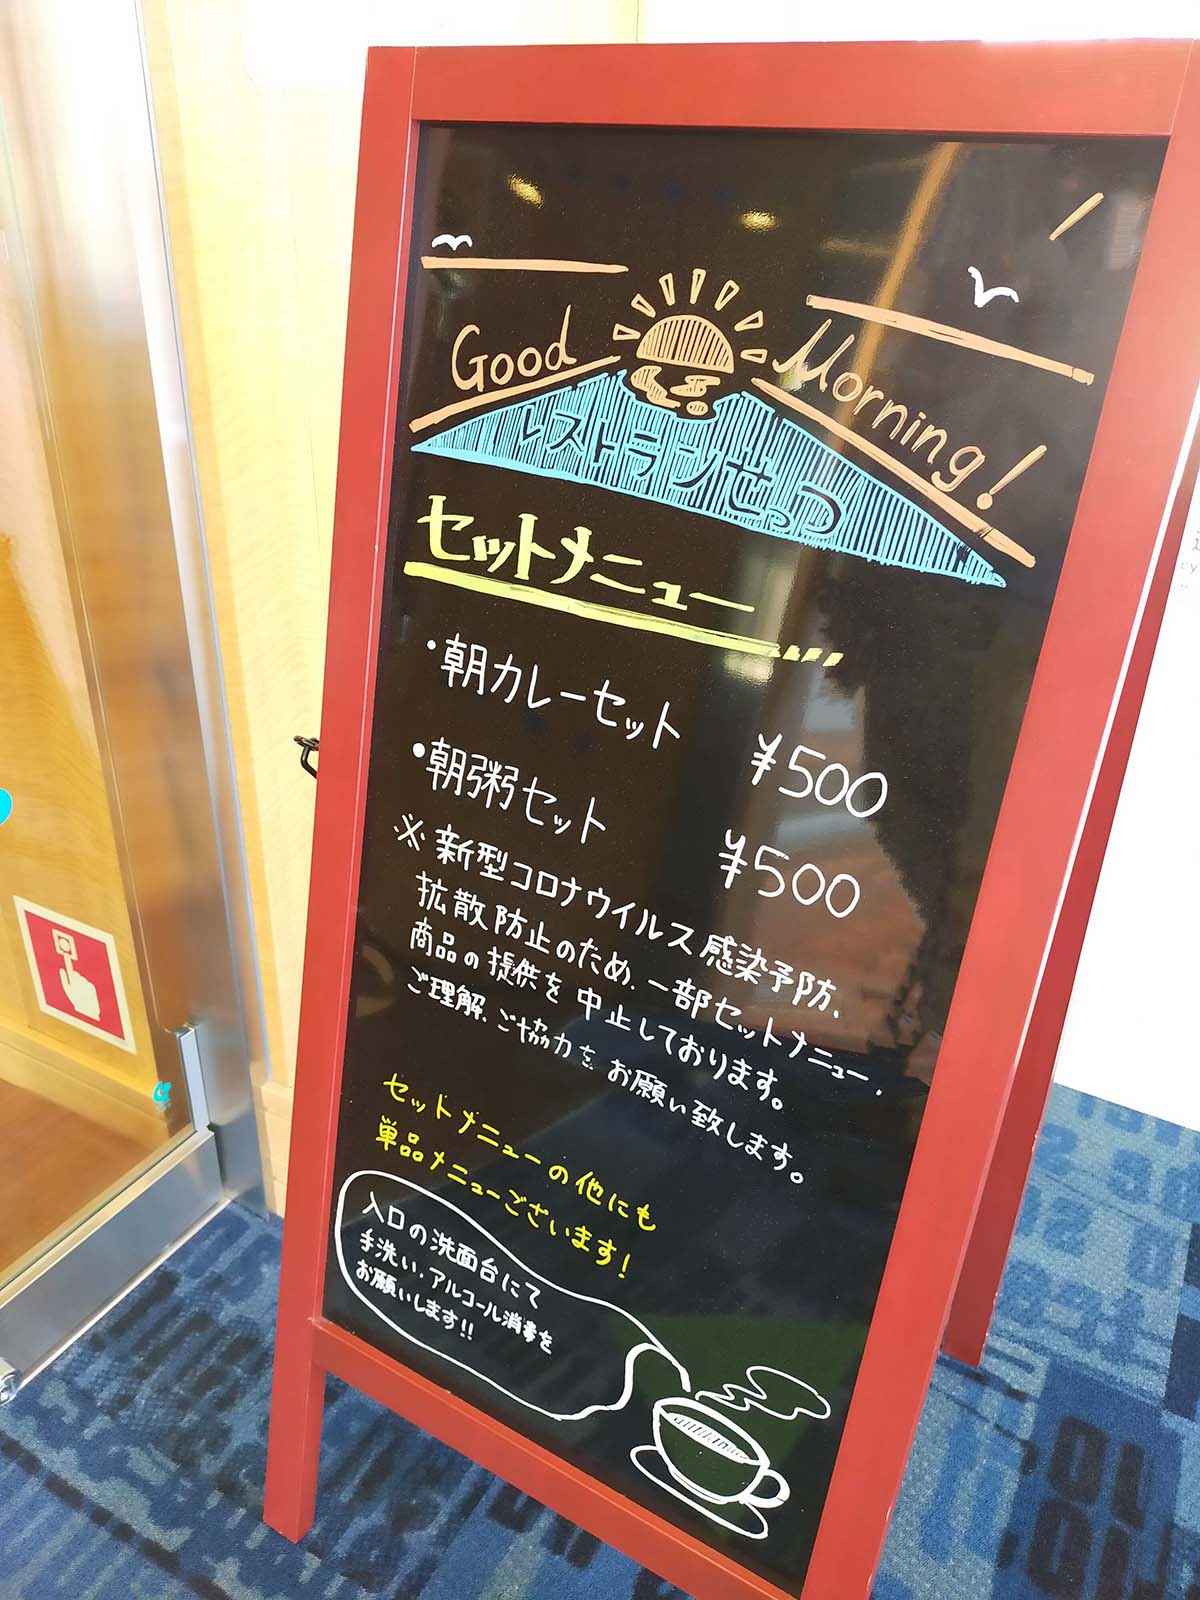 Good Morning!
レストランせっつ
セットメニュー
・朝カレーセット ¥500
・朝粥セット ¥500
※新型コロナウイルス感染予防、
拡散防止のため、一部セットメニュー、
商品の提供を中止しております。
ご理解、ご協力をお願い致します。
セットメニューの他にも
単品メニューございます!
入口の洗面台にて
手洗い・アルコール消毒を
お願いします!!